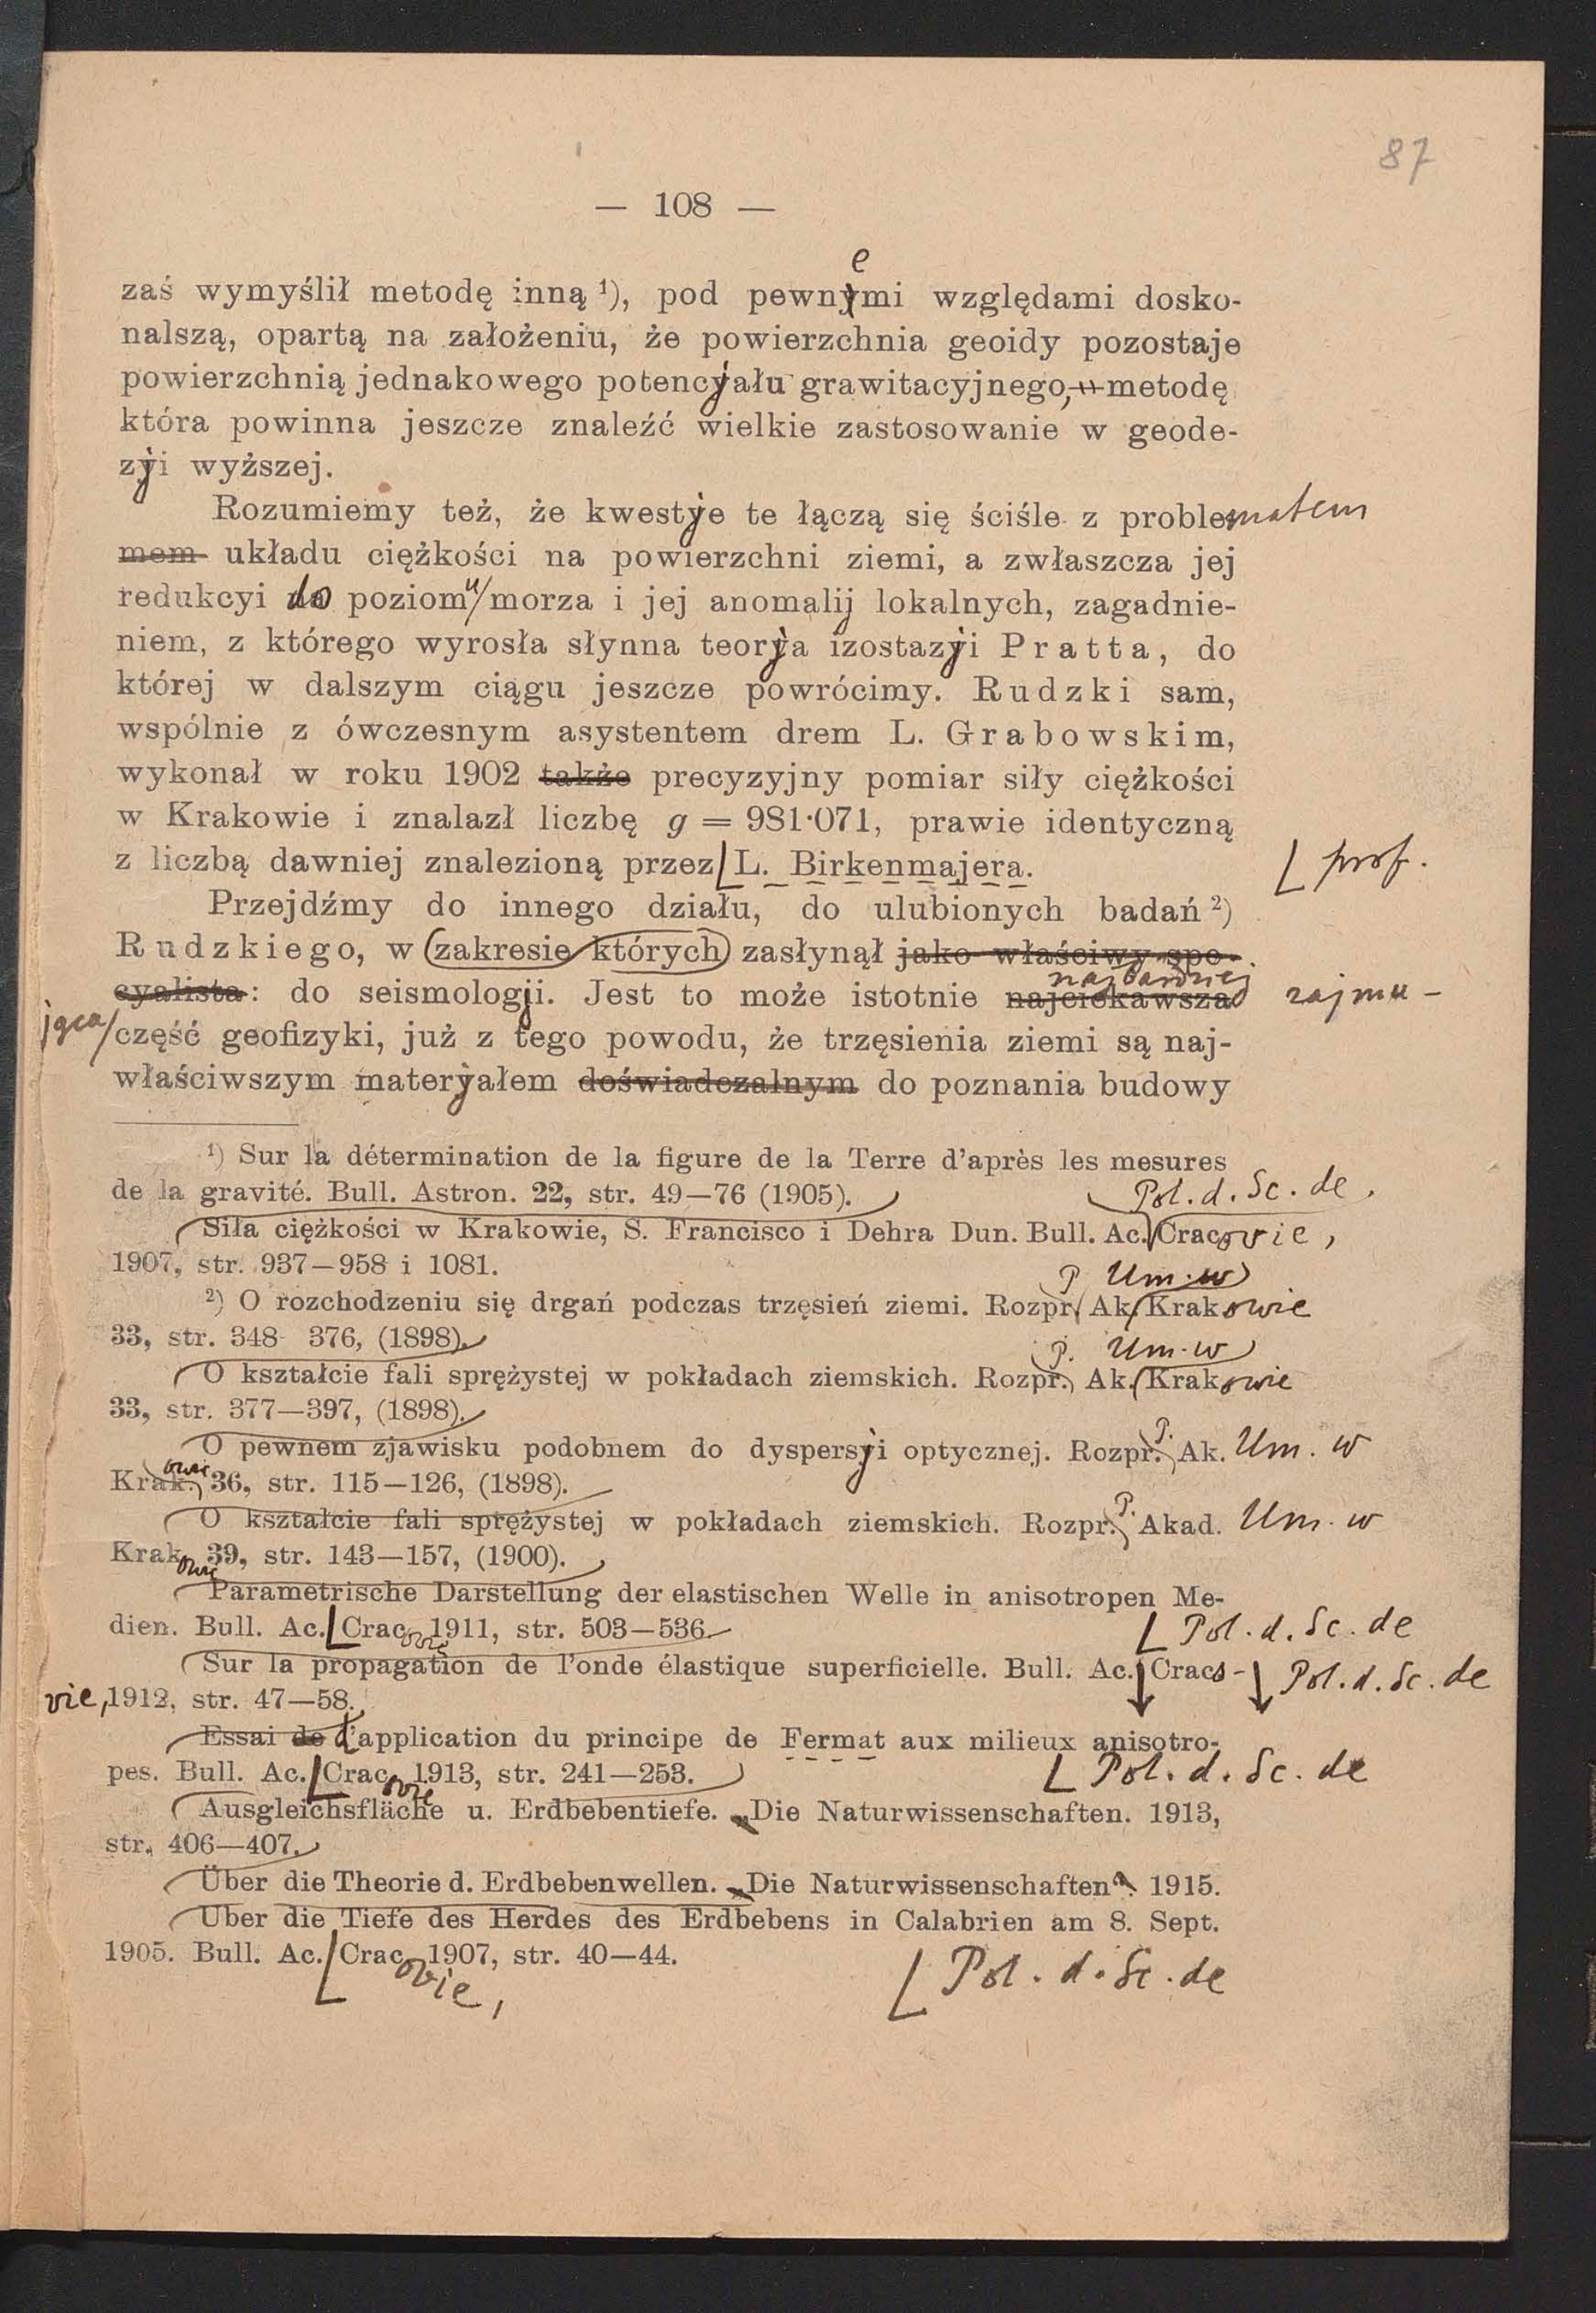 87
— 108 —
e
zaś wymyślił metodę inną ¹), pod pewnymi względami dosko-
nalszą, opartą na założeniu, że powierzchnia geoidy pozostaje
powierzchnią jednakowego potencyału grawitacyjnego, metodę
która powinna jeszcze znaleźć wielkie zastosowanie w geode-
zyi wyższej.
Rozumiemy też, że kwestye te łączą się ściśle z problematem
mem układu ciężkości na powierzchni ziemi, a zwłaszcza jej
redukcyi do poziomu morza i jej anomalij lokalnych, zagadnie-
niem, z którego wyrosła słynna teorya izostazyi Pratta, do
której w dalszym ciągu jeszcze powrócimy. Rudzki sam,
wspólnie z ówczesnym asystentem drem L. Grabowskim,
wykonał w roku 1902 także precyzyjny pomiar siły ciężkości
w Krakowie i znalazł liczbę g = 981·071, prawie identyczną
z liczbą dawniej znalezioną przez L. Birkenmajera. prof.
Przejdźmy do innego działu, do ulubionych badań ²)
Rudzkiego, w zakresie których zasłynął jako właściwy spe-
najbardziej
cyalista: do seismologji. Jest to może istotnie najciekawsza zajmu-
jąca część geofizyki, już z tego powodu, że trzęsienia ziemi są naj-
właściwszym materyałem doświadczalnym do poznania budowy
¹) Sur la détermination de la figure de la Terre d'après les mesures
de la gravité. Bull. Astron. 22, str. 49—76 (1905). Pol. d. Sc. de
Siła ciężkości w Krakowie, S. Francisco i Dehra Dun. Bull. Ac. Cracovie,
1907, str. 937—958 i 1081.
P Um. w
²) O rozchodzeniu się drgań podczas trzęsień ziemi. Rozpr. Ak. Krakowie
33, str. 348 376, (1898).
P. Um. w
O kształcie fali sprężystej w pokładach ziemskich. Rozpr. Ak. Krakowie
33, str. 377—397, (1898).
O pewnem zjawisku podobnem do dyspersyi optycznej. Rozpr. P. Ak. Um. w
Krak. owie 36, str. 115—126, (1898).
O kształcie fali sprężystej w pokładach ziemskich. Rozpr. P. Akad. Um. w
Krakowie 39, str. 143—157, (1900).
Parametrische Darstellung der elastischen Welle in anisotropen Me-
dien. Bull. Ac. Cracovie 1911, str. 503—536. Pol. d. Sc. de
Sur la propagation de l'onde élastique superficielle. Bull. Ac. Craco- Pol. d. Sc. de
vie, 1912, str. 47—58.
Essai de d'application du principe de Fermat aux milieux anisotro-
pes. Bull. Ac. Cracovie 1913, str. 241—253. Pol. d. Sc. de
Ausgleichsfläche u. Erdbebentiefe. „Die Naturwissenschaften. 1913,
str. 406—407.
Über die Theorie d. Erdbebenwellen. „Die Naturwissenschaften“. 1915.
Über die Tiefe des Herdes des Erdbebens in Calabrien am 8. Sept.
1905. Bull. Ac. Cracovie, 1907, str. 40—44. Pol. d. Sc. de